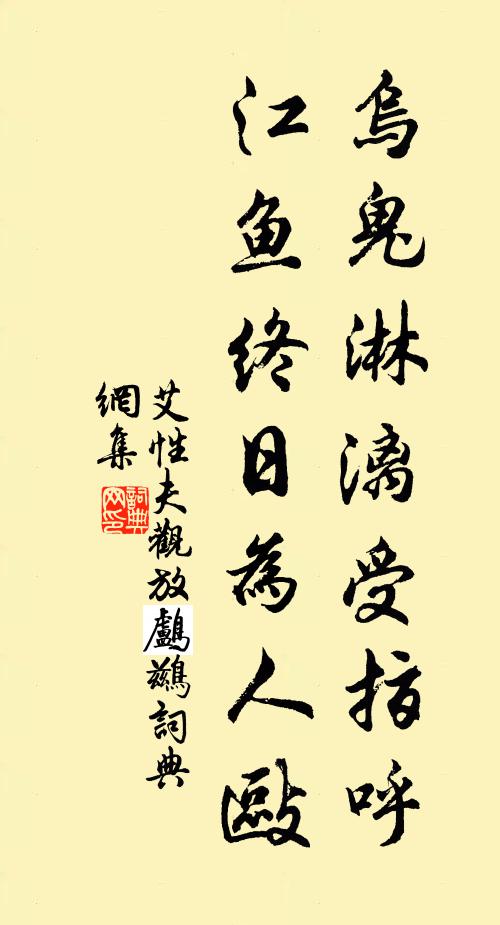 烏鬼淋漓受指呼
江鱼終日為人敺
艾性夫觀放鸕鷀詞典
網集
詞典
网印